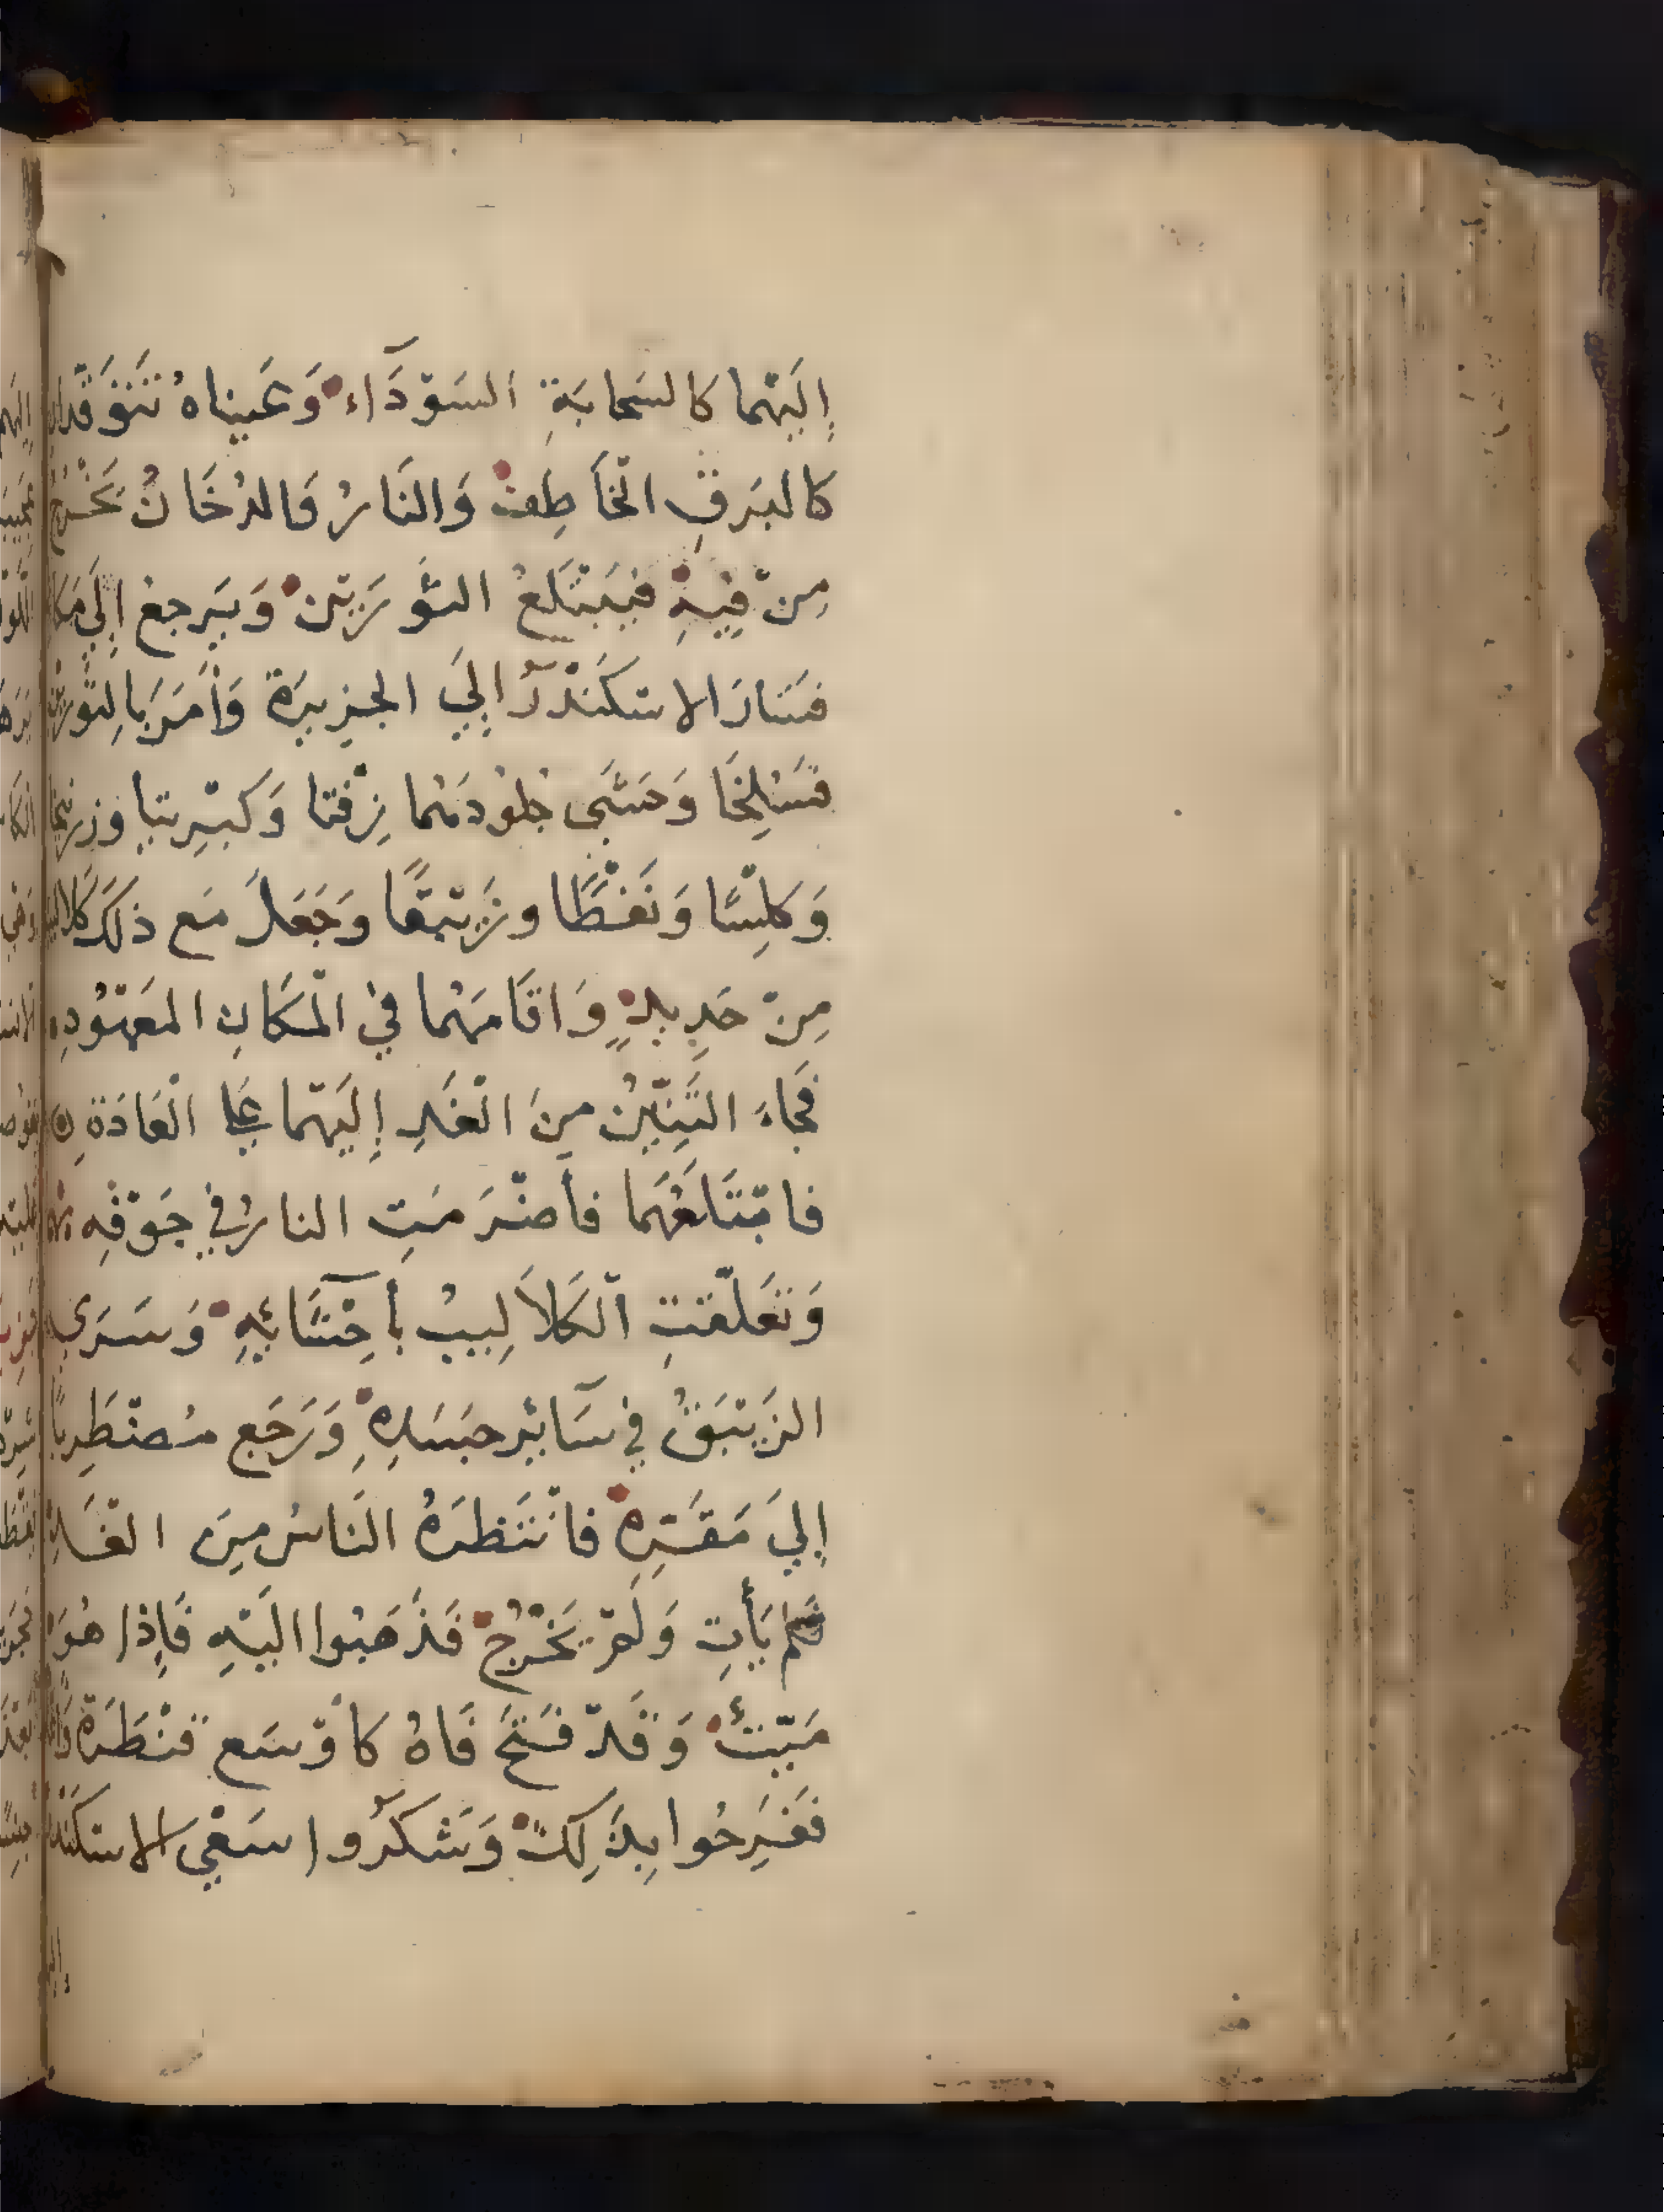 إِلَيْهِما كالسَحابَةِ السَوْدَآء وَعَيناهُ تَتَوَقَّدان
كالبَرقِ الْخَاطِفْ وَالنَارُ وَالدُخَانُ يَخْرُجُ
مِنْ فِيهِ فيَبْتَلعُ الثَورَيْنْ وَيَرجعُ إِلَي مَكا
فَسَارَ الاسكَنْدَرُ إِلَي الجزِيرَة وَأَمَرَ بِالثَورَيْنِ
فَسُلِخَا وَحَشَى جُلُودَهُما زِفْتا وَكبْرِيتا وزرنيخا
وَكِلْسًا وَنَفْطًا وزَيْبَقًا وَجَعَلَ مَع ذلكَ كَلاليبَ
مِنْ حَدِيدٍ وَاقَامَهُما في الْمكَانِ المَعْهُودِ
فَجَاءَ التِنّينُ مِنَ الْغَدِ إِلَيْهِما عَلَى الْعَادَةِ
فابْتَلَعَهُمَا فأضْرَمَتِ النارُ في جَوْفِهِ
وَتَعَلّقتِ الْكَلاَلِيبُ بأحْشَائِهِ وَسَرَى
الزَيْبَقُ في سَآئرِ جَسَدِهِ وَرَجَع مُضْطَرِبًا
إِلَيَ مَقَرِّهِ فانْتَظَرَهُ النَاسُ مِنَ الغَدِ
فلم يَأتِ وَلَمْ يَخْرُجْ فَذَهَبُوا الَيْهِ فَإِذا هُوَ
مَيّتٌ وَقَدْ فَتَحَ فَاهُ كأوْسَع قنْطَرَة وَاعلا
فَفَرِحُوا بِذَلِكَ وَشَكَرُوا سَعْيَ الاسكَنْدر